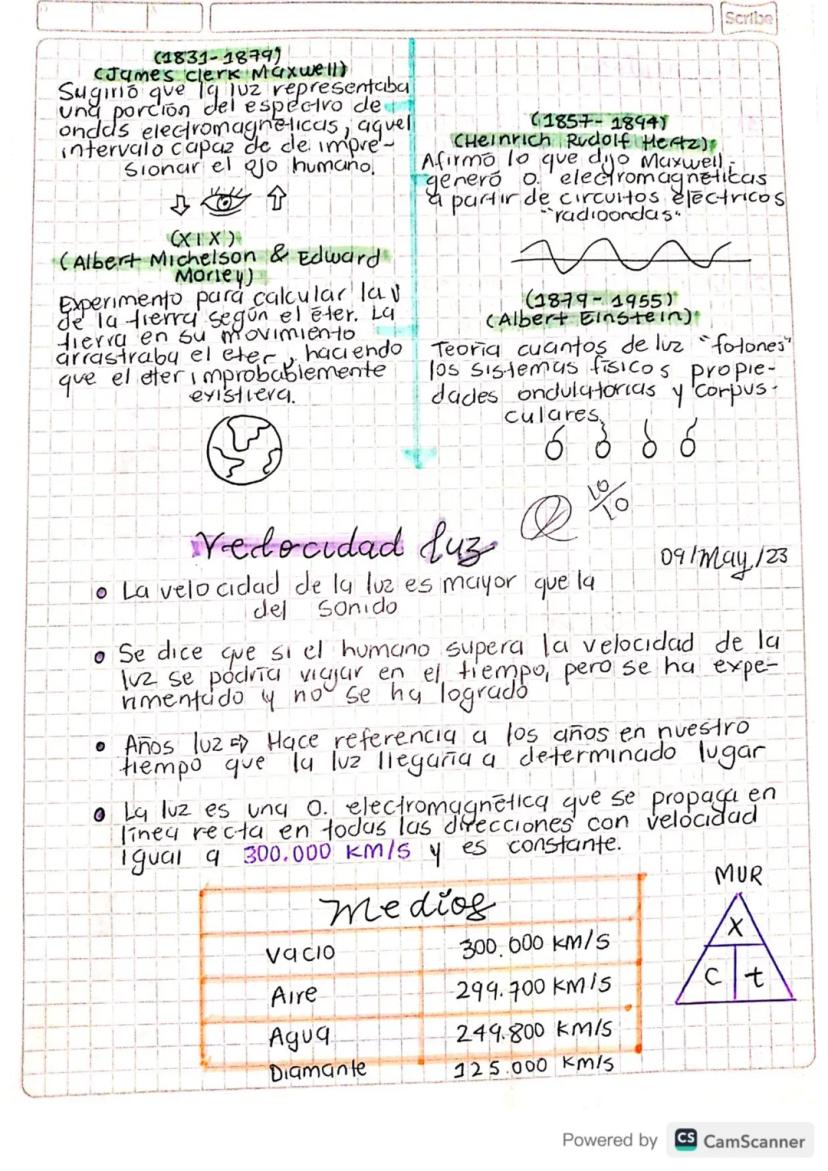 Scribe
(1831-1879)
(James Clerk Maxwell)
Sugirió que la luz representaba
una porción del espectro de
ondas electromagnéticas, aquel
intervalo capaz de de impre-
sionar el ojo humano.
(XIX)
(Albert Michelson & Edward
Morley)
Experimento para calcular la v
de la tierra según el éter. La
tierra en su movimiento
arrastraba el eter, haciendo
que el eter improbablemente
existiera.
(1857-1894)
(Heinrich Rudolf Hertz);
Afirmó lo que dijo Maxwell;
generó o. electromagnéticas
a partir de circuitos eléctricos
"radioondas"
(1879-1955)
(Albert Einstein)
Teoría cuantos de luz "fotones"
los sistemas físicos propie-
dades ondulatorias y corpus-
culares.
10/10
Velocidad luz
09/May/23
• La velocidad de la luz es mayor que la
del sonido
• Se dice que si el humano supera la velocidad de la
luz se podría viajar en el tiempo, pero se ha expe-
rimentado y no se ha logrado
• Años luz ⇒ Hace referencia a los años en nuestro
tiempo que la luz llegaría a determinado lugar
• La luz es una O. electromagnética que se propaga en
línea recta en todas las direcciones con velocidad
igual a 300.000 KM/S y es constante.
MUR
X
C t
Medios
Vacio 300.000 KM/S
Aire 299.700 KM/S
Agua 249.800 KM/S
Diamante 125.000 KM/S
Powered by CS CamScanner